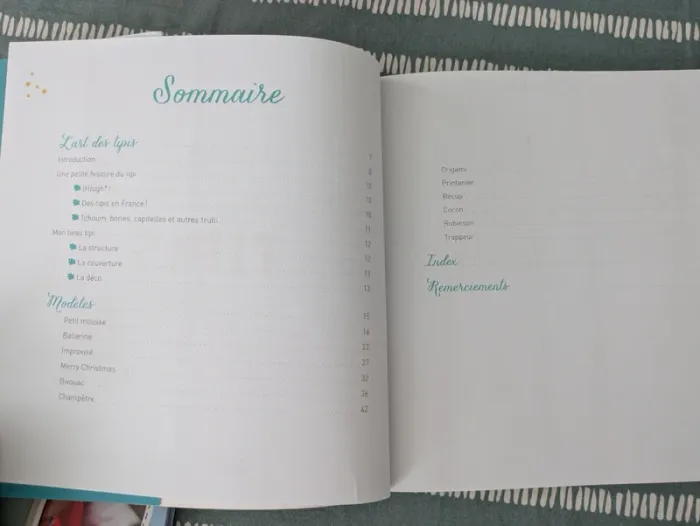 Sommaire
L'art des tipis
Introduction 7
Une petite histoire du tipi 8
(H)ugh* ! 10
Des tipis en France ! 10
Tchoum, bories, capitelles et autres trulli... 10
Mon beau tipi 11
La structure 12
La couverture 12
La déco 13
Modèles 15
Petit mousse 16
Ballerine 22
Improvisé 27
Merry Christmas 32
Bivouac 36
Champêtre 42
Origami
Printanier
Récup
Cocon
Robinson
Trappeur
Index
Remerciements